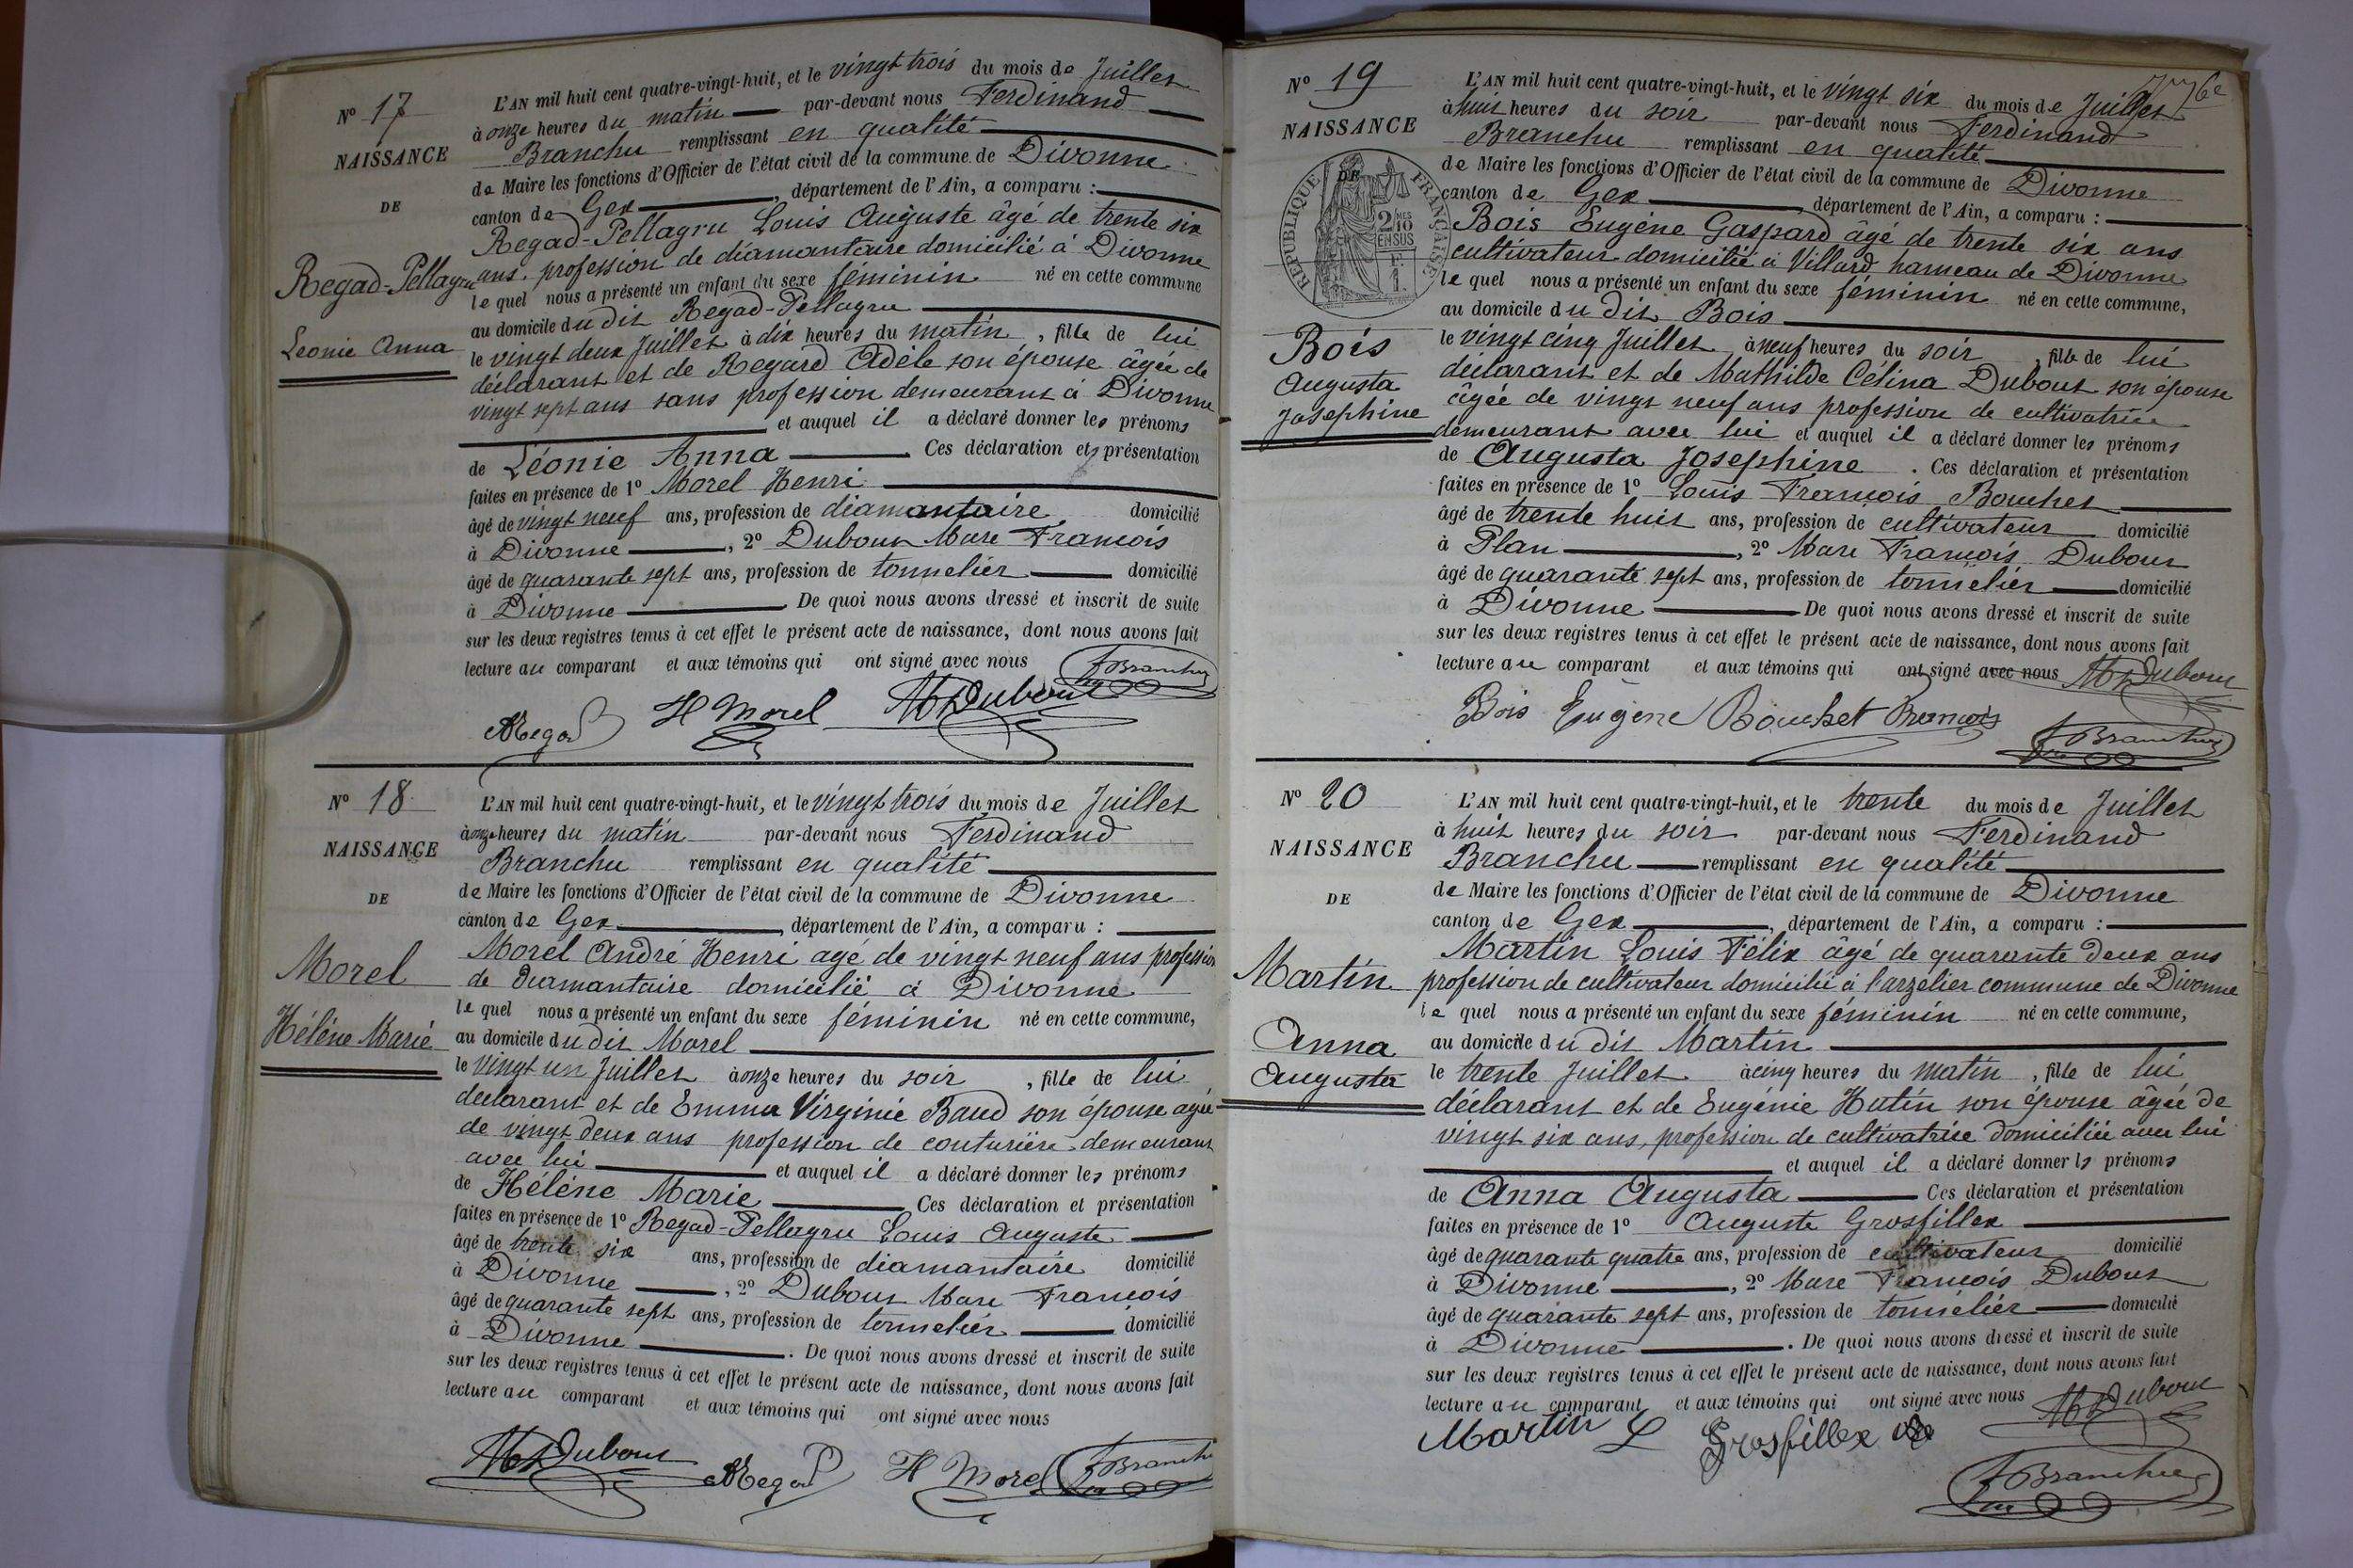 N° 17
NAISSANCE
DE
Regad-Pellagru
Léonie Anna
L'AN mil huit cent quatre-vingt-huit, et le vingt trois du mois de Juillet
à onze heures du matin par-devant nous Ferdinand
Branchu remplissant en qualité
de Maire les fonctions d'Officier de l'état civil de la commune de Divonne
canton de Gex, département de l'Ain, a comparu :
Regad-Pellagru Louis Auguste âgé de trente six
ans. profession de diamantaire domicilié à Divonne
lequel nous a présenté un enfant du sexe féminin né en cette commune
au domicile du dit Regad-Pellagru
le vingt deux Juillet à dix heures du matin, fille de lui
déclarant et de Regard Adèle son épouse âgée de
vingt sept ans sans profession demeurant à Divonne
et auquel il a déclaré donner les prénoms
de Léonie Anna Ces déclaration et présentation
faites en présence de 1° Morel Henri
âgé de vingt neuf ans, profession de diamantaire domicilié
à Divonne, 2° Dubout Marc François
âgé de quarante sept ans, profession de tonnelier domicilié
à Divonne De quoi nous avons dressé et inscrit de suite
sur les deux registres tenus à cet effet le présent acte de naissance, dont nous avons fait
lecture au comparant et aux témoins qui ont signé avec nous
F Branchu
Regad H Morel M F Dubout
N° 18
NAISSANCE
DE
Morel
Hélène Marie
L'AN mil huit cent quatre-vingt-huit, et le vingt trois du mois de Juillet
à onze heures du matin par-devant nous Ferdinand
Branchu remplissant en qualité
de Maire les fonctions d'Officier de l'état civil de la commune de Divonne
canton de Gex, département de l'Ain, a comparu :
Morel André Henri agé de vingt neuf ans profession
de diamantaire domicilié à Divonne
lequel nous a présenté un enfant du sexe féminin né en cette commune,
au domicile du dit Morel
le vingt un Juillet à onze heures du soir, fille de lui
déclarant et de Emma Virginie Baud son épouse agée
de vingt deux ans profession de couturière demeurant
avec lui et auquel il a déclaré donner les prénoms
de Hélène Marie Ces déclaration et présentation
faites en présence de 1° Regad-Pellagru Louis Auguste
âgé de trente six ans, profession de diamantaire domicilié
à Divonne, 2° Dubout Marc François
âgé de quarante sept ans, profession de tonnelier domicilié
à Divonne. De quoi nous avons dressé et inscrit de suite
sur les deux registres tenus à cet effet le présent acte de naissance, dont nous avons fait
lecture au comparant et aux témoins qui ont signé avec nous
M F Dubout Regad H Morel F Branchu
N° 19
NAISSANCE
DE
RÉPUBLIQUE FRANÇAISE
2/10 MES
EN SUS
F.
1.
Bois
Augusta
Joséphine
L'AN mil huit cent quatre-vingt-huit, et le vingt six du mois de Juillet
à huit heures du soir par-devant nous Ferdinand
Branchu remplissant en qualité
de Maire les fonctions d'Officier de l'état civil de la commune de Divonne
canton de Gex, département de l'Ain, a comparu :
Bois Eugène Gaspard âgé de trente six ans
cultivateur domicilié à Villard hameau de Divonne
lequel nous a présenté un enfant du sexe féminin né en cette commune,
au domicile du dit Bois
le vingt cinq Juillet à neuf heures du soir, fille de lui
déclarant et de Mathilde Célina Dubout son épouse
âgée de vingt neuf ans profession de cultivatrice
demeurant avec lui et auquel il a déclaré donner les prénoms
de Augusta Joséphine. Ces déclaration et présentation
faites en présence de 1° Louis François Bouchet
âgé de trente huit ans, profession de cultivateur domicilié
à Plan, 2° Marc François Dubout
âgé de quarante sept ans, profession de tonnelier domicilié
à Divonne De quoi nous avons dressé et inscrit de suite
sur les deux registres tenus à cet effet le présent acte de naissance, dont nous avons fait
lecture au comparant et aux témoins qui ont signé avec nous M F Dubout
Bois Eugène Bouchet François
F Branchu
N° 20
NAISSANCE
DE
Martin
Anna
Augusta
L'AN mil huit cent quatre-vingt-huit, et le trente du mois de Juillet
à huit heures du soir par-devant nous Ferdinand
Branchu remplissant en qualité
de Maire les fonctions d'Officier de l'état civil de la commune de Divonne
canton de Gex, département de l'Ain, a comparu :
Martin Louis Félix âgé de quarante deux ans
profession de cultivateur domicilié à l'arzelier commune de Divonne
lequel nous a présenté un enfant du sexe féminin né en cette commune,
au domicile du dit Martin
le trente Juillet à cinq heures du matin, fille de lui
déclarant et de Eugénie Hutin son épouse âgée de
vingt six ans, profession de cultivatrice domiciliée avec lui
et auquel il a déclaré donner ls prénoms
de Anna Augusta Ces déclaration et présentation
faites en présence de 1° Auguste Grosfillex
âgé de quarante quatre ans, profession de cultivateur domicilié
à Divonne, 2° Marc François Dubout
âgé de quarante sept ans, profession de tonnelier domicilié
à Divonne. De quoi nous avons dressé et inscrit de suite
sur les deux registres tenus à cet effet le présent acte de naissance, dont nous avons fait
lecture au comparant et aux témoins qui ont signé avec nous M F Dubout
Martin L Grosfillex
F Branchu